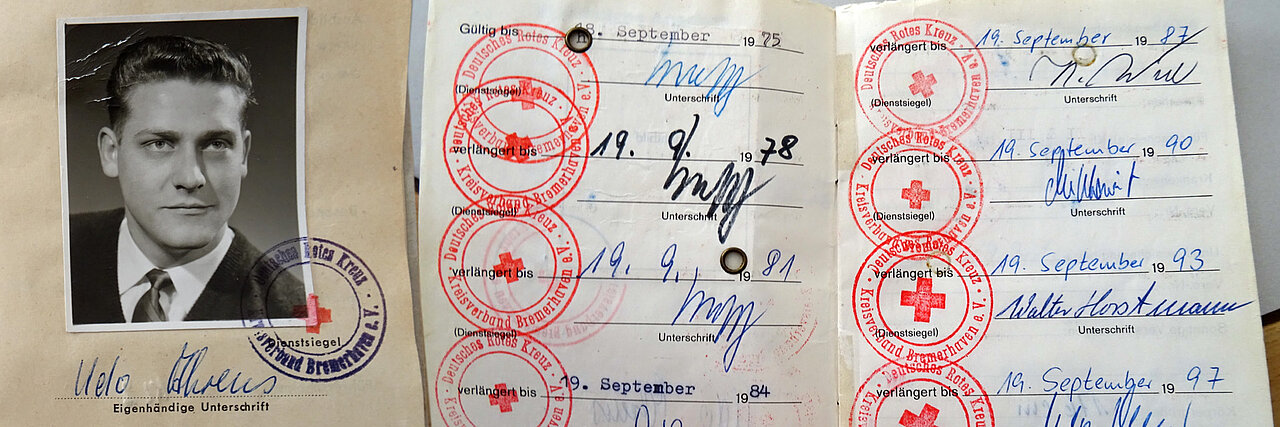 Deutsches Rotes Kreuz
Kreisverband Bremerhaven e.V.
Dienstsiegel
Udo Ahrens
Eigenhändige Unterschrift
Gültig bis 18. September 1975
(Dienstsiegel) Unterschrift
Deutsches Rotes Kreuz · Kreisverband Bremerhaven e.V.
verlängert bis 19. 9. 1978
(Dienstsiegel) Unterschrift
Deutsches Rotes Kreuz · Kreisverband Bremerhaven e.V.
verlängert bis 19. 9. 1981
(Dienstsiegel) Unterschrift
Deutsches Rotes Kreuz · Kreisverband Bremerhaven e.V.
verlängert bis 19. September 1984
Deutsches Rotes Kreuz
verlängert bis 19. September 1987
(Dienstsiegel) Unterschrift
Deutsches Rotes Kreuz · Kreisverband Bremerhaven e.V.
verlängert bis 19. September 1990
(Dienstsiegel) Unterschrift
Deutsches Rotes Kreuz · Kreisverband Bremerhaven e.V.
verlängert bis 19. September 1993
Walter Horstmann
(Dienstsiegel) Unterschrift
Deutsches Rotes Kreuz · Kreisverband Bremerhaven e.V.
verlängert bis 19. September 1997
Deutsches Rotes Kreuz